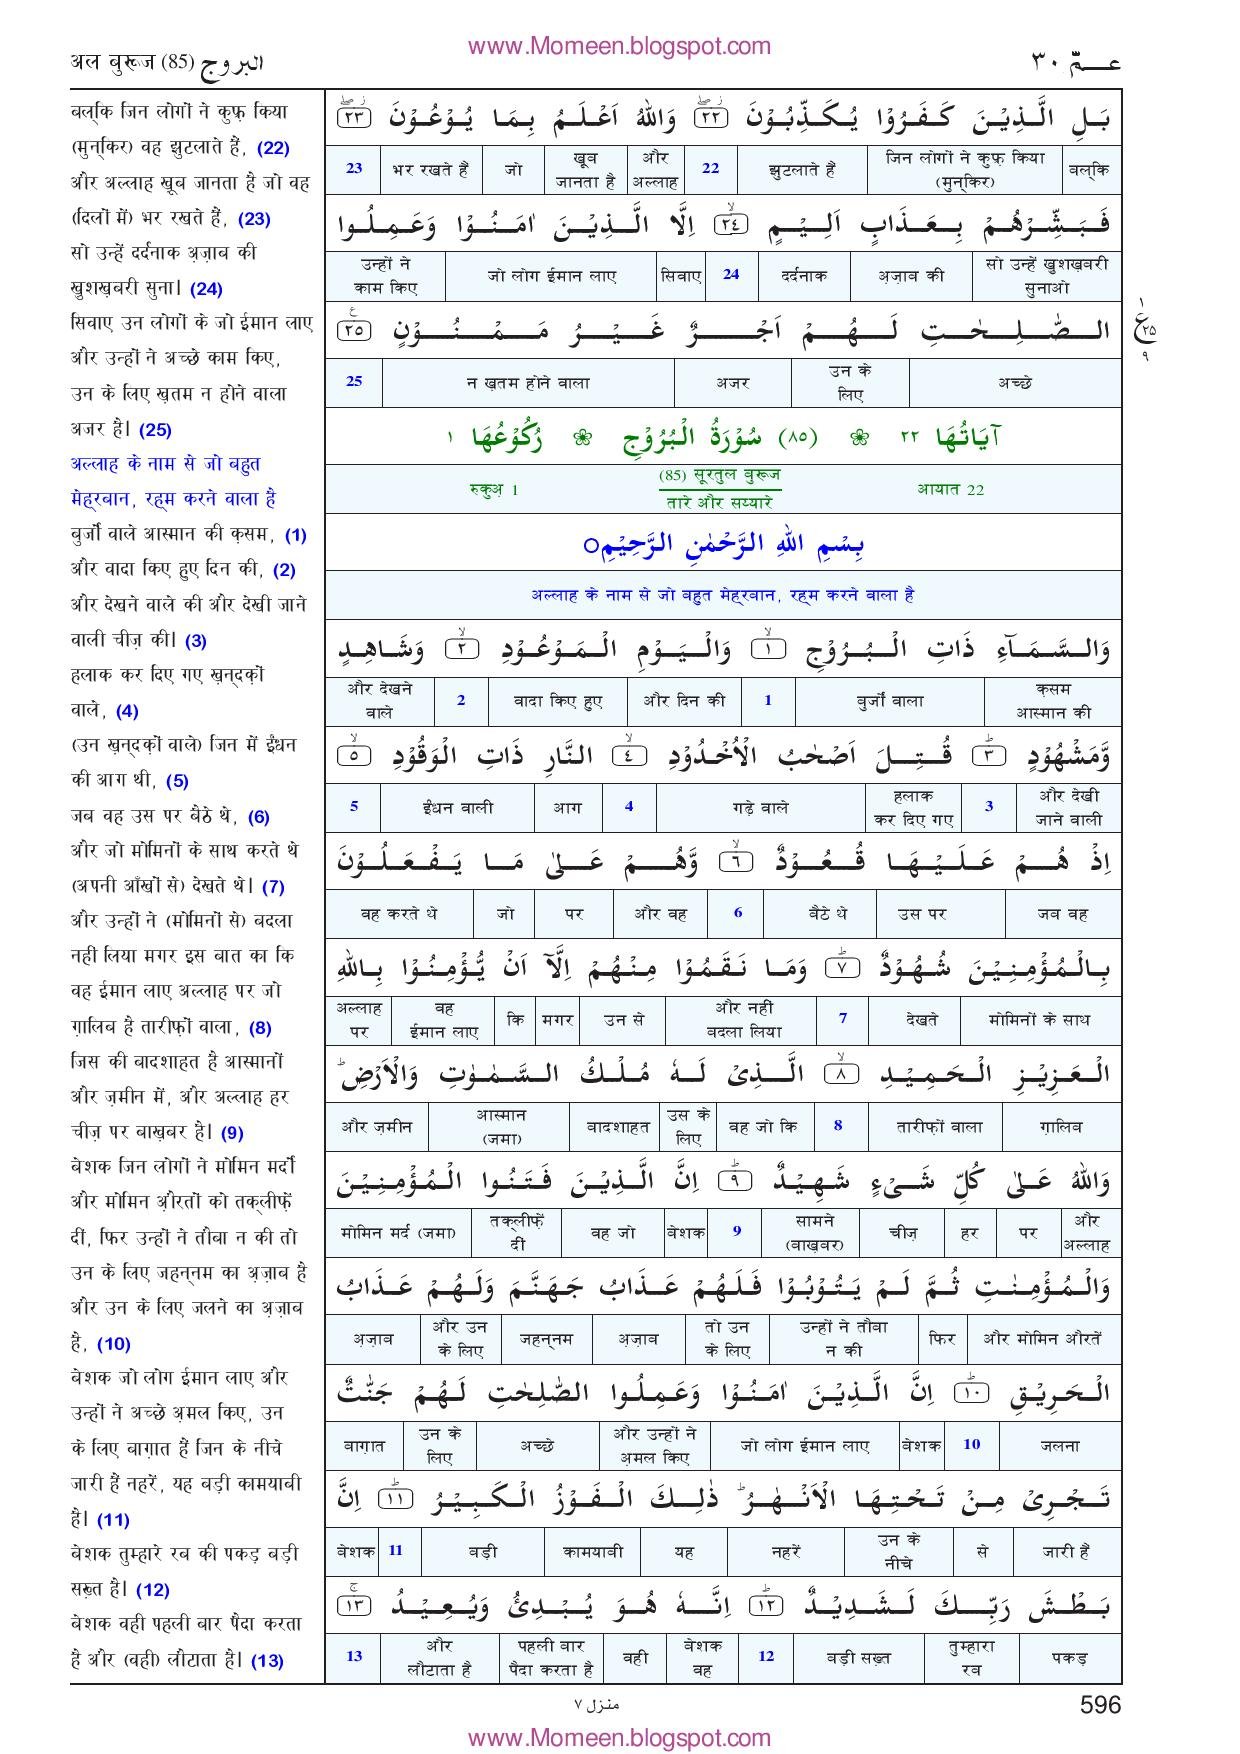 www.Momeen.blogspot.com
अल बुरूज (85) البروج
عـمّ ٣٠
बल्कि जिन लोगों ने कुफ़ किया
(मुन्किर) वह झुटलाते हैं, (22)
और अल्लाह खूब जानता है जो वह
(दिलों में) भर रखते हैं, (23)
सो उन्हें दर्दनाक अ़ज़ाब की
खुशख़बरी सुना। (24)
सिवाए उन लोगों के जो ईमान लाए
और उन्हों ने अच्छे काम किए,
उन के लिए ख़तम न होने वाला
अजर है। (25)
अल्लाह के नाम से जो बहुत
मेह्रबान, रह्म करने वाला है
बुर्जों वाले आस्मान की क़सम, (1)
और वादा किए हुए दिन की, (2)
और देखने वाले की और देखी जाने
वाली चीज़ की। (3)
हलाक कर दिए गए ख़न्दक़ों
वाले, (4)
(उन ख़न्दक़ों वाले) जिन में ईंधन
की आग थी, (5)
जब वह उस पर बैठे थे, (6)
और जो मोमिनों के साथ करते थे
(अपनी आँखों से) देखते थे। (7)
और उन्हों ने (मोमिनों से) बदला
नहीं लिया मगर इस बात का कि
वह ईमान लाए अल्लाह पर जो
ग़ालिब है तारीफ़ों वाला, (8)
जिस की बादशाहत है आस्मानों
और ज़मीन में, और अल्लाह हर
चीज़ पर बाख़बर है। (9)
बेशक जिन लोगों ने मोमिन मर्दों
और मोमिन औरतों को तक्लीफ़ें
दीं, फिर उन्हों ने तौबा न की तो
उन के लिए जहन्नम का अ़ज़ाब है
और उन के लिए जलने का अ़ज़ाब
है, (10)
बेशक जो लोग ईमान लाए और
उन्हों ने अच्छे अ़मल किए, उन
के लिए बाग़ात हैं जिन के नीचे
जारी हैं नहरें, यह बड़ी कामयाबी
है। (11)
बेशक तुम्हारे रब की पकड़ बड़ी
सख़्त है। (12)
बेशक वही पहली बार पैदा करता
है और (वही) लौटाता है। (13)
بَلِ الَّذِيْنَ كَفَرُوْا يُكَذِّبُوْنَ ٢٢ وَاللّٰهُ اَعْلَمُ بِمَا يُوْعُوْنَ ٢٣
23 भर रखते हैं जो खूब जानता है और अल्लाह 22 झुटलाते हैं जिन लोगों ने कुफ़ किया (मुन्किर) बल्कि
فَبَشِّرْهُمْ بِعَذَابٍ اَلِيْمٍ ٢٤ اِلَّا الَّذِيْنَ اٰمَنُوْا وَعَمِلُوا
उन्हों ने काम किए जो लोग ईमान लाए सिवाए 24 दर्दनाक अ़ज़ाब की सो उन्हें खुशख़बरी सुनाओ
الصّٰلِحٰتِ لَهُمْ اَجْرٌ غَيْرُ مَمْنُوْنٍ ٢٥
١ ع ٢٥ ٩
25 न ख़तम होने वाला अजर उन के लिए अच्छे
آيَاتُهَا ٢٢ (٨٥) سُوْرَةُ الْبُرُوْجِ رُكُوْعُهَا ١
रुकुअ़ 1 (85) सूरतुल बुरूज तारे और सय्यारे आयात 22
بِسْمِ اللّٰهِ الرَّحْمٰنِ الرَّحِيْمِ
अल्लाह के नाम से जो बहुत मेह्रबान, रह्म करने वाला है
وَالسَّمَآءِ ذَاتِ الْبُرُوْجِ ١ وَالْيَوْمِ الْمَوْعُوْدِ ٢ وَشَاهِدٍ
और देखने वाले 2 वादा किए हुए और दिन की 1 बुर्जों वाला क़सम आस्मान की
وَّمَشْهُوْدٍ ٣ قُتِلَ اَصْحٰبُ الْاُخْدُوْدِ ٤ النَّارِ ذَاتِ الْوَقُوْدِ ٥
5 ईंधन वाली आग 4 गढ़े वाले हलाक कर दिए गए 3 और देखी जाने वाली
اِذْ هُمْ عَلَيْهَا قُعُوْدٌ ٦ وَّهُمْ عَلٰى مَا يَفْعَلُوْنَ
वह करते थे जो पर और वह 6 बैठे थे उस पर जब वह
بِالْمُؤْمِنِيْنَ شُهُوْدٌ ٧ وَمَا نَقَمُوْا مِنْهُمْ اِلَّآ اَنْ يُّؤْمِنُوْا بِاللّٰهِ
अल्लाह पर वह ईमान लाए कि मगर उन से और नहीं बदला लिया 7 देखते मोमिनों के साथ
الْعَزِيْزِ الْحَمِيْدِ ٨ الَّذِىْ لَهٗ مُلْكُ السَّمٰوٰتِ وَالْاَرْضِ ؕ
और ज़मीन आस्मान (जमा) बादशाहत उस के लिए वह जो कि 8 तारीफ़ों वाला ग़ालिब
وَاللّٰهُ عَلٰى كُلِّ شَىْءٍ شَهِيْدٌ ٩ اِنَّ الَّذِيْنَ فَتَنُوا الْمُؤْمِنِيْنَ
मोमिन मर्द (जमा) तक्लीफ़ें दीं वह जो बेशक 9 सामने (बाख़बर) चीज़ हर पर और अल्लाह
وَالْمُؤْمِنٰتِ ثُمَّ لَمْ يَتُوْبُوْا فَلَهُمْ عَذَابُ جَهَنَّمَ وَلَهُمْ عَذَابُ
अ़ज़ाब और उन के लिए जहन्नम अ़ज़ाब तो उन के लिए उन्हों ने तौबा न की फिर और मोमिन औरतें
الْحَرِيْقِ ١٠ اِنَّ الَّذِيْنَ اٰمَنُوْا وَعَمِلُوا الصّٰلِحٰتِ لَهُمْ جَنّٰتٌ
बाग़ात उन के लिए अच्छे और उन्हों ने अ़मल किए जो लोग ईमान लाए बेशक 10 जलना
تَجْرِىْ مِنْ تَحْتِهَا الْاَنْهٰرُ ؕ ذٰلِكَ الْفَوْزُ الْكَبِيْرُ ١١ اِنَّ
बेशक 11 बड़ी कामयाबी यह नहरें उन के नीचे से जारी हैं
بَطْشَ رَبِّكَ لَشَدِيْدٌ ١٢ اِنَّهٗ هُوَ يُبْدِئُ وَيُعِيْدُ ١٣
13 और लौटाता है पहली बार पैदा करता है वही बेशक वह 12 बड़ी सख़्त तुम्हारा रब पकड़
منزل ٧
596
www.Momeen.blogspot.com